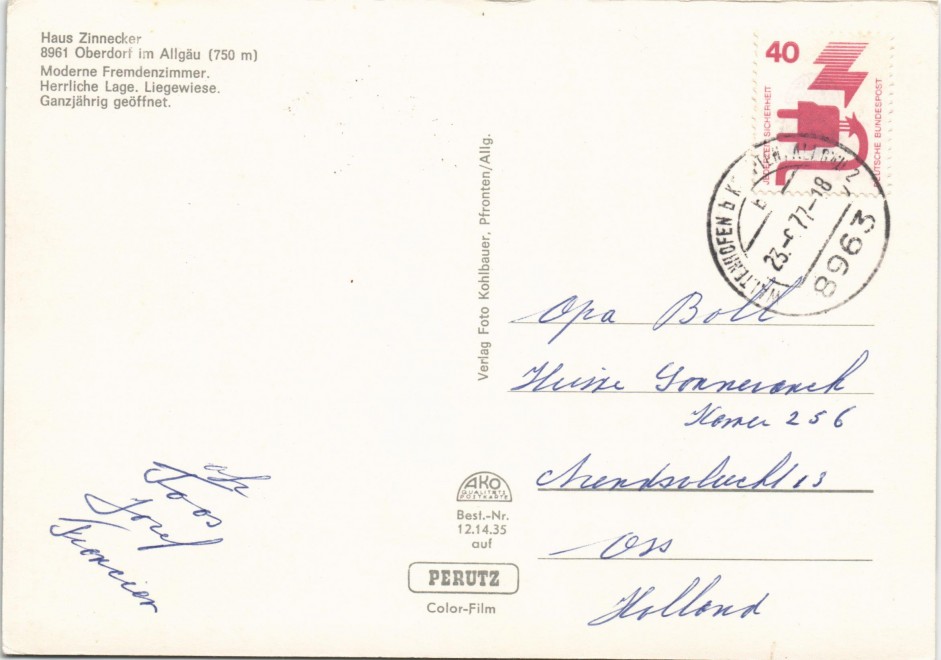 Haus Zinnecker
8961 Oberdorf im Allgäu (750 m)
Moderne Fremdenzimmer.
Herrliche Lage. Liegewiese.
Ganzjährig geöffnet.
40
JEDERZEIT SICHERHEIT
DEUTSCHE BUNDESPOST
WALTENHOFEN b K
23.-6.77-18
8963
Verlag Foto Kohlbauer, Pfronten/Allg.
Opa Boll
Huize Sonnevanck
Kamer 256
13
Oss
Holland
Toos
Jozef
AKO
QUALITÄTS
POSTKARTE
Best.-Nr.
12.14.35
auf
PERUTZ
Color-Film